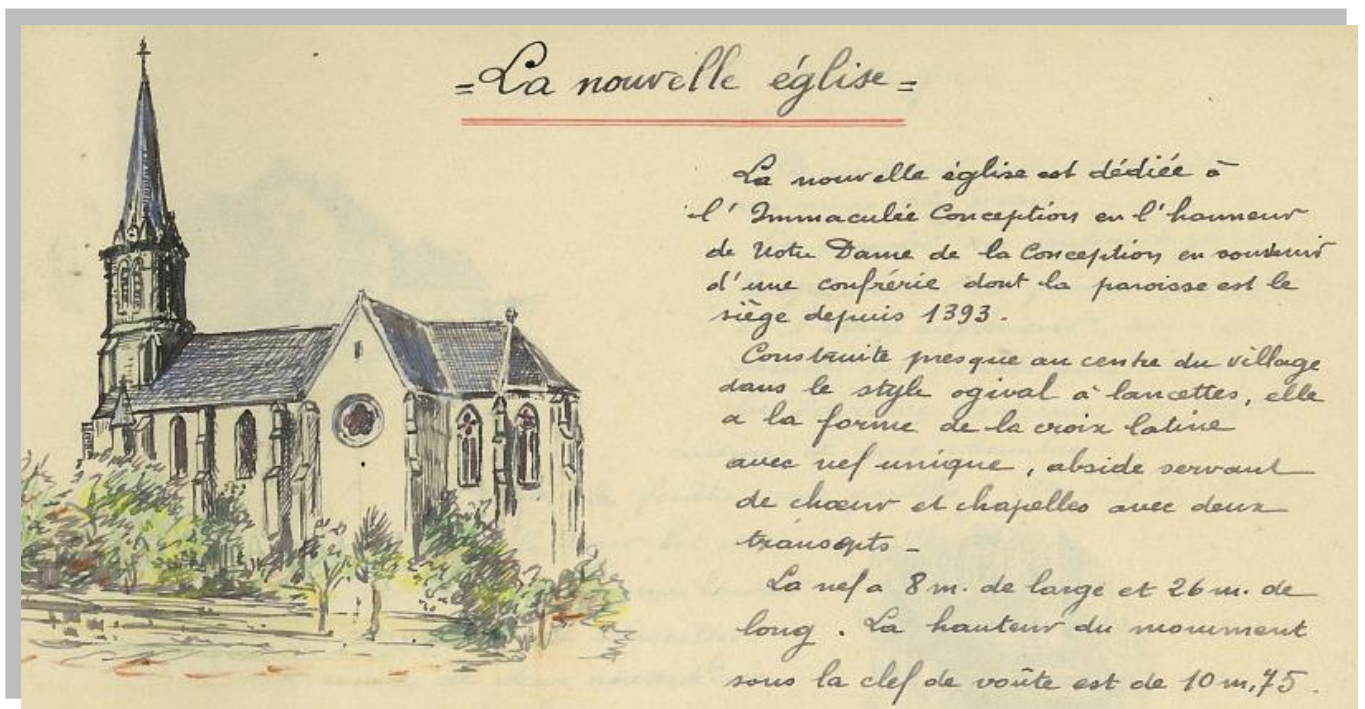 =La nouvelle église=
La nouvelle église est dédiée à
l'Immaculée Conception en l'honneur
de Notre Dame de la Conception en souvenir
d'une confrérie dont la paroisse est le
siège depuis 1393.
Construite presque au centre du village
dans le style ogival à lancettes, elle
a la forme de la croix latine
avec nef unique, abside servant
de chœur et chapelles avec deux
transepts -
La nef a 8 m. de large et 26 m. de
long. La hauteur du monument
sous la clef de voûte est de 10 m,75.